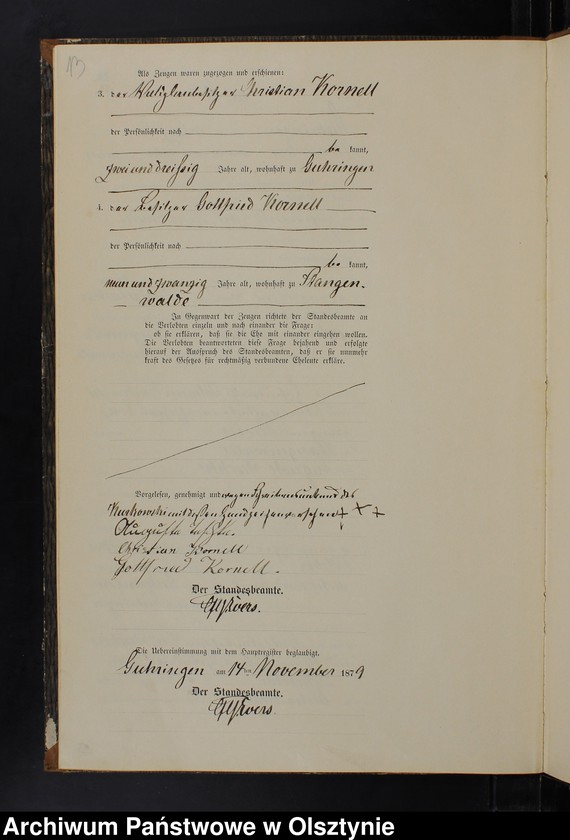 13
Als Zeugen waren zugezogen und erschienen:
3. der Christian Kornell
der Persönlichkeit nach
be kannt,
zwei und dreißig Jahre alt, wohnhaft zu Guhringen
4. der Besitzer Gottfried Kornell
der Persönlichkeit nach
be kannt,
neun und zwanzig Jahre alt, wohnhaft zu Stangen-
walde
In Gegenwart der Zeugen richtete der Standesbeamte an
die Verlobten einzeln und nach einander die Frage:
ob sie erklären, daß sie die Ehe mit einander eingehen wollen.
Die Verlobten beantworteten diese Frage bejahend und erfolgte
hierauf der Ausspruch des Standesbeamten, daß er sie nunmehr
kraft des Gesetzes für rechtmäßig verbundene Eheleute erkläre.
Vorgelesen, genehmigt und wegen Schreibensunkunde des
mit dessen Handzeichen versehen + + +
Auguste
Christian Kornell
Gottfried Kornell.
Der Standesbeamte.
Die Uebereinstimmung mit dem Hauptregister beglaubigt.
Guhringen am 14ten November 1879
Der Standesbeamte.
Archiwum Państwowe w Olsztynie